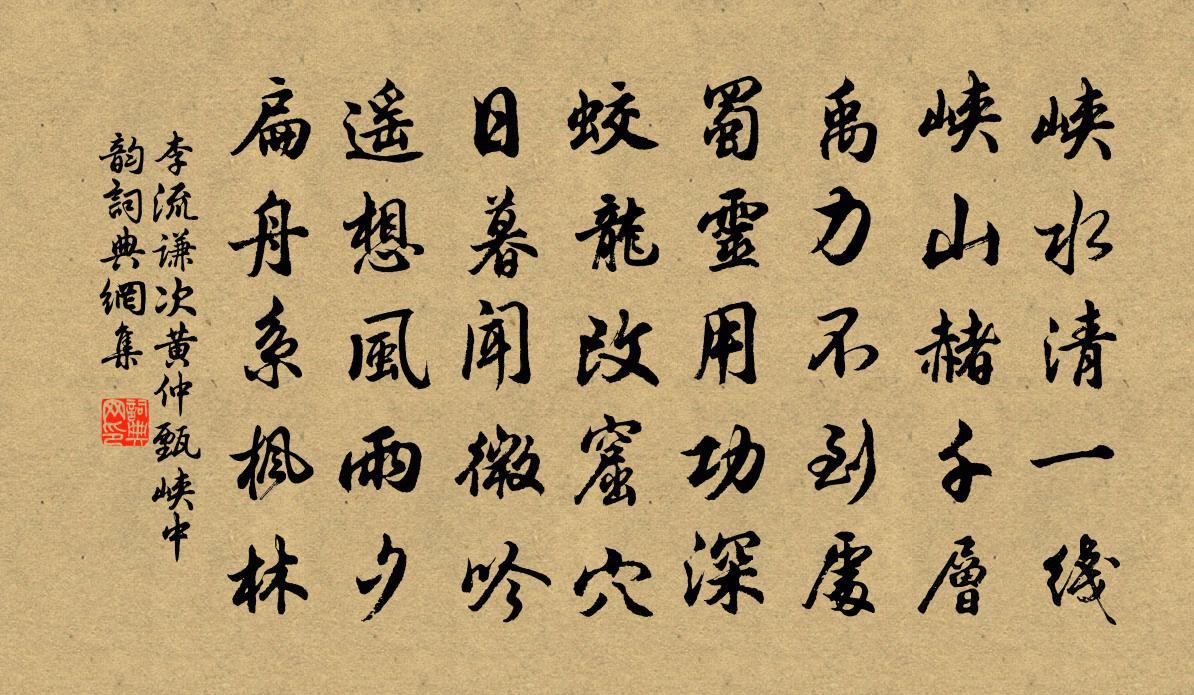 峡水清一线
峡山赭千層
禹力不到處
蜀靈用功深
蛟龍改窟穴
日暮聞微吟
遥想風雨夕
扁舟系楓林
李流谦次黄仲甄峡中
韵詞典網集
詞典
网印